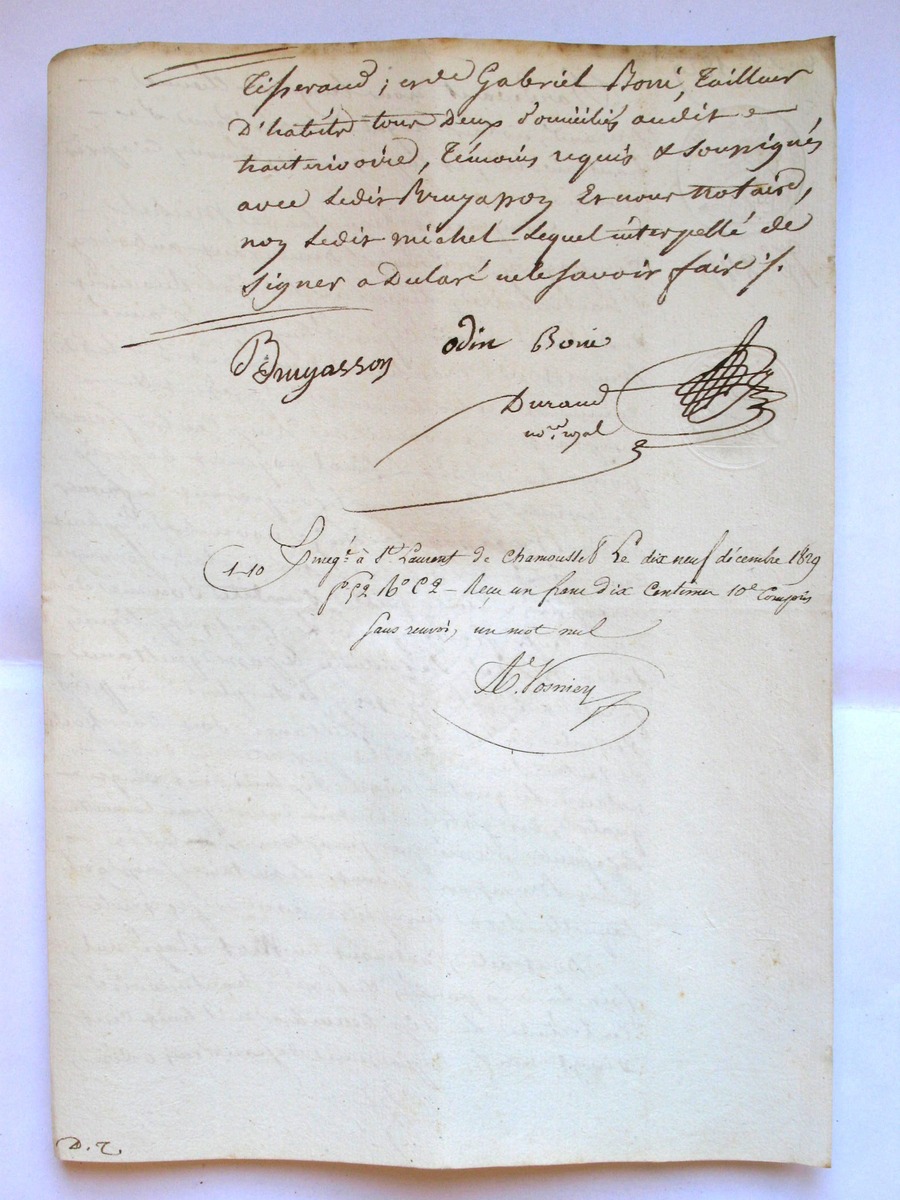 Tisserand ; et de Gabriel Boni, Tailleur
D'habits tous deux domiciliés audit
hauterivoire, Témoins requis & soussignés
avec Ledit Bruyasson Et nous Notaire,
non Ledit michel Lequel interpellé de
signer a Déclaré ne le savoir faire ./.
Bruyasson odin Boni
Durand
no.re royal
1-10 Enreg.é à St. Laurent de Chamousset Le dix neuf décembre 1829
f° 52 V° C 2 - Reçu un franc dix Centimes 10e Compris
sans renvoi, un mot nul
D. T.